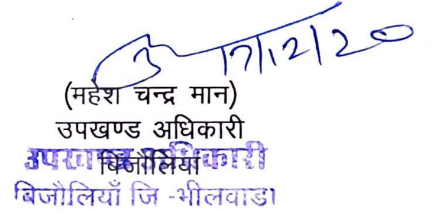 17/12/20
(महेश चन्द्र मान)
उपखण्ड अधिकारी
बिजोलियां
उपखण्ड अधिकारी
बिजौलियाँ जि -भीलवाडा